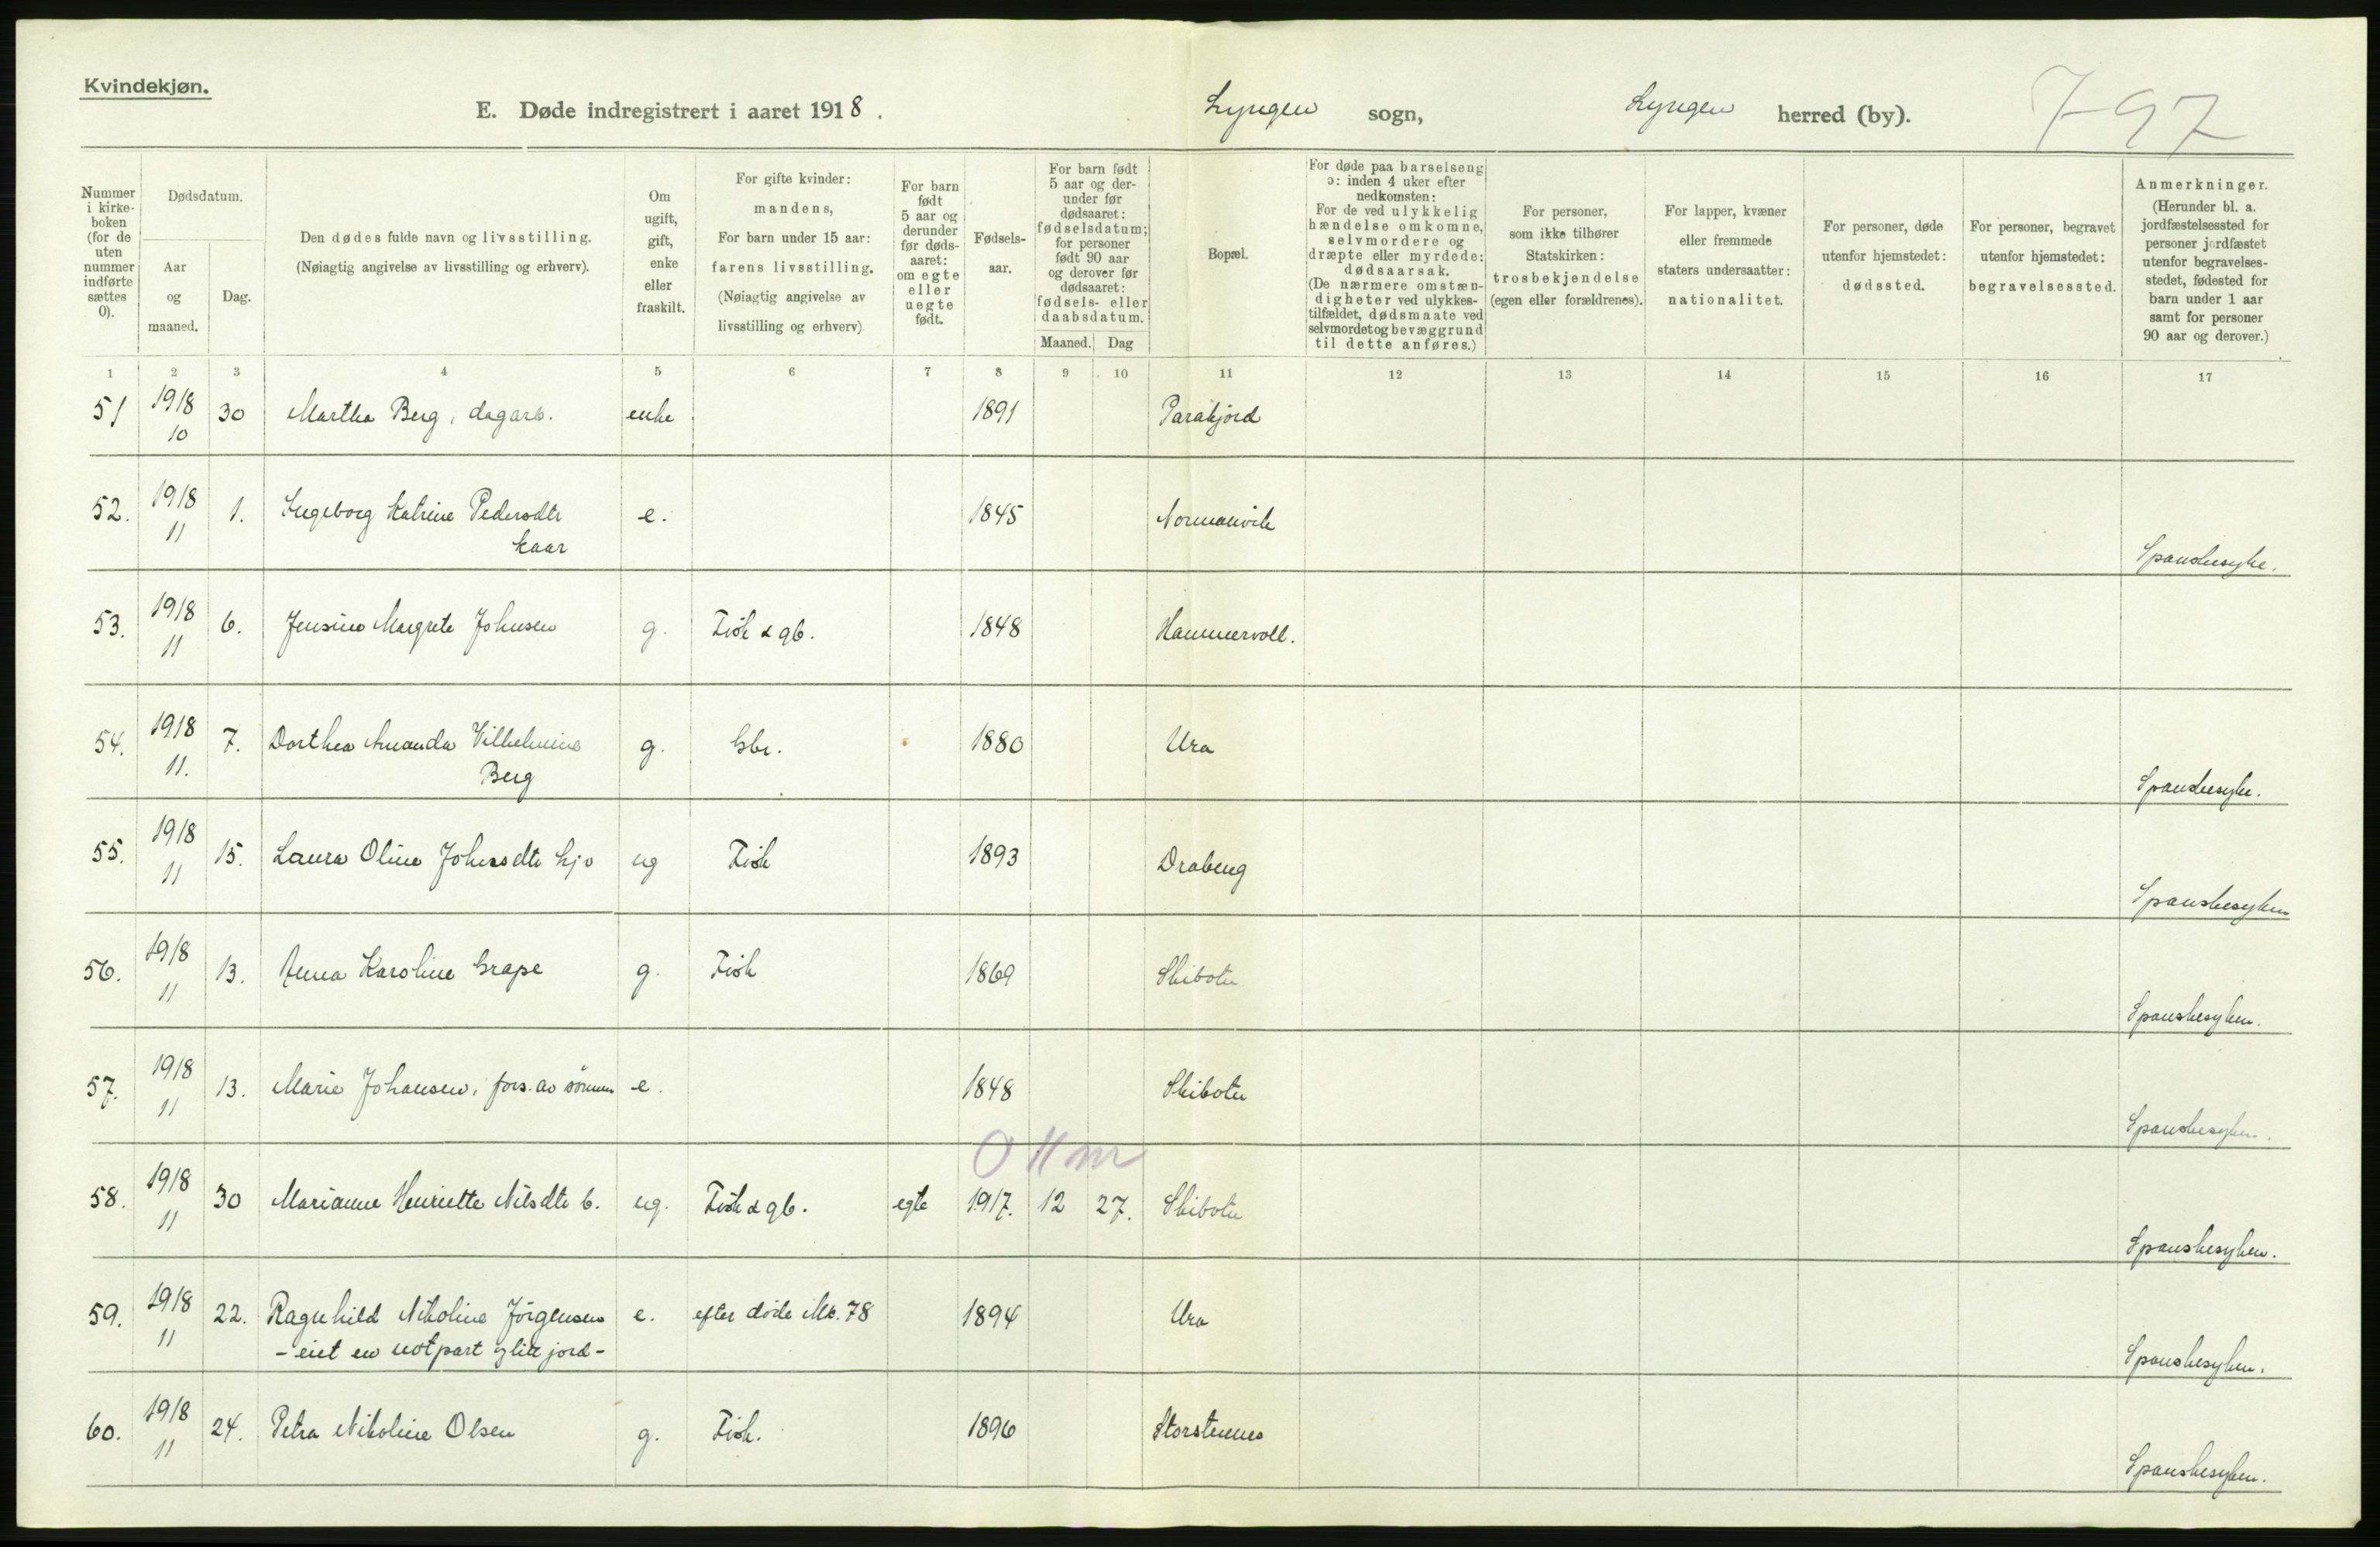 Kvindekjøn.
E. Døde indregistrert i aaret 1918. Lyngen sogn, Lyngen herred (by). 7-97
Nummer i kirke-boken (for de uten nummer indførte sættes 0).
Dødsdatum.
Aar og maaned.
Dag.
Den dødes fulde navn og livsstilling.
(Nøiagtig angivelse av livsstilling og erhverv).
Om ugift, gift, enke eller fraskilt.
For gifte kvinder:
mandens,
For barn under 15 aar:
farens livsstilling.
(Nøiagtig angivelse av
livsstilling og erhverv)
For barn født 5 aar og derunder før døds-aaret: om egte eller uegte født.
Fødsels-aar.
For barn født
5 aar og der-
under før
dødsaaret:
fødselsdatum;
for personer
født 90 aar
og derover før
dødsaaret:
fødsels- eller
daabsdatum.
Maaned. Dag
Bopæl.
For døde paa barselseng
ɔ: inden 4 uker efter
nedkomsten:
For de ved ulykkelig
hændelse omkomne,
selvmordere og
dræpte eller myrdede:
dødsaarsak.
(De nærmere omstæn-
digheter ved ulykkes-
tilfældet, dødsmaate ved
selvmordet og bevæggrund
til dette anføres.)
For personer,
som ikke tilhører
Statskirken:
trosbekjendelse
(egen eller forældrenes).
For lapper, kvæner
eller fremmede
staters undersaatter:
nationalitet.
For personer, døde
utenfor hjemstedet:
dødssted.
For personer, begravet
utenfor hjemstedet:
begravelsessted.
Anmerkninger.
(Herunder bl. a.
jordfæstelsessted for
personer jordfæstet
utenfor begravelses-
stedet, fødested for
barn under 1 aar
samt for personer
90 aar og derover.)
1 2 3 4 5 6 7 8 9 10 11 12 13 14 15 16 17
51 1918 10 30 Martha Berg, dagarb. enke 1891 Parakjord
52. 1918 11 1. Ingeborg Katrine Pedersdtr e. 1845 Normanvik
Kaar Spanskesyke.
53. 1918 11 6. Jensine Margrete Johnsen g. Fisk & gb. 1848 Hammervoll.
54. 1918 11. 7. Dorthea Amanda Vilhelmine g. Gbr. 1880 Ura
Berg Spanskesyke.
55. 1918 11 15. Laura Oline Johansdtr Hjo ug Fisk 1893 Drabeng
Spanskesyken
56. 1918 11 13. Anna Karoline Grape g. Fisk 1869 Skibotn
Spanskesyken.
57. 1918 11 13. Marie Johansen, fors. av sønnen e. 1848 Skibotn
Spanskesyken.
0 11 m
58. 1918 11 30 Marianne Henriette Nilsdtr b. ug. Fisk & gb. egte 1917. 12 27. Skibotn
Spanskesyken.
59. 1918 11 22. Ragnhild Nikoline Jörgensen e. efter døde Mk. 78 1894 Ura
- eiet en notpart og litt jord -
Spanskesyken.
60. 1918 11 24. Petra Nikoline Olsen g. Fisk. 1896 Storstennes
Spanskesyken.